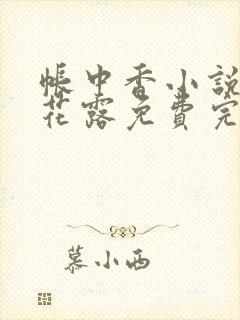 帳中香小說
花露免費完
慕小西